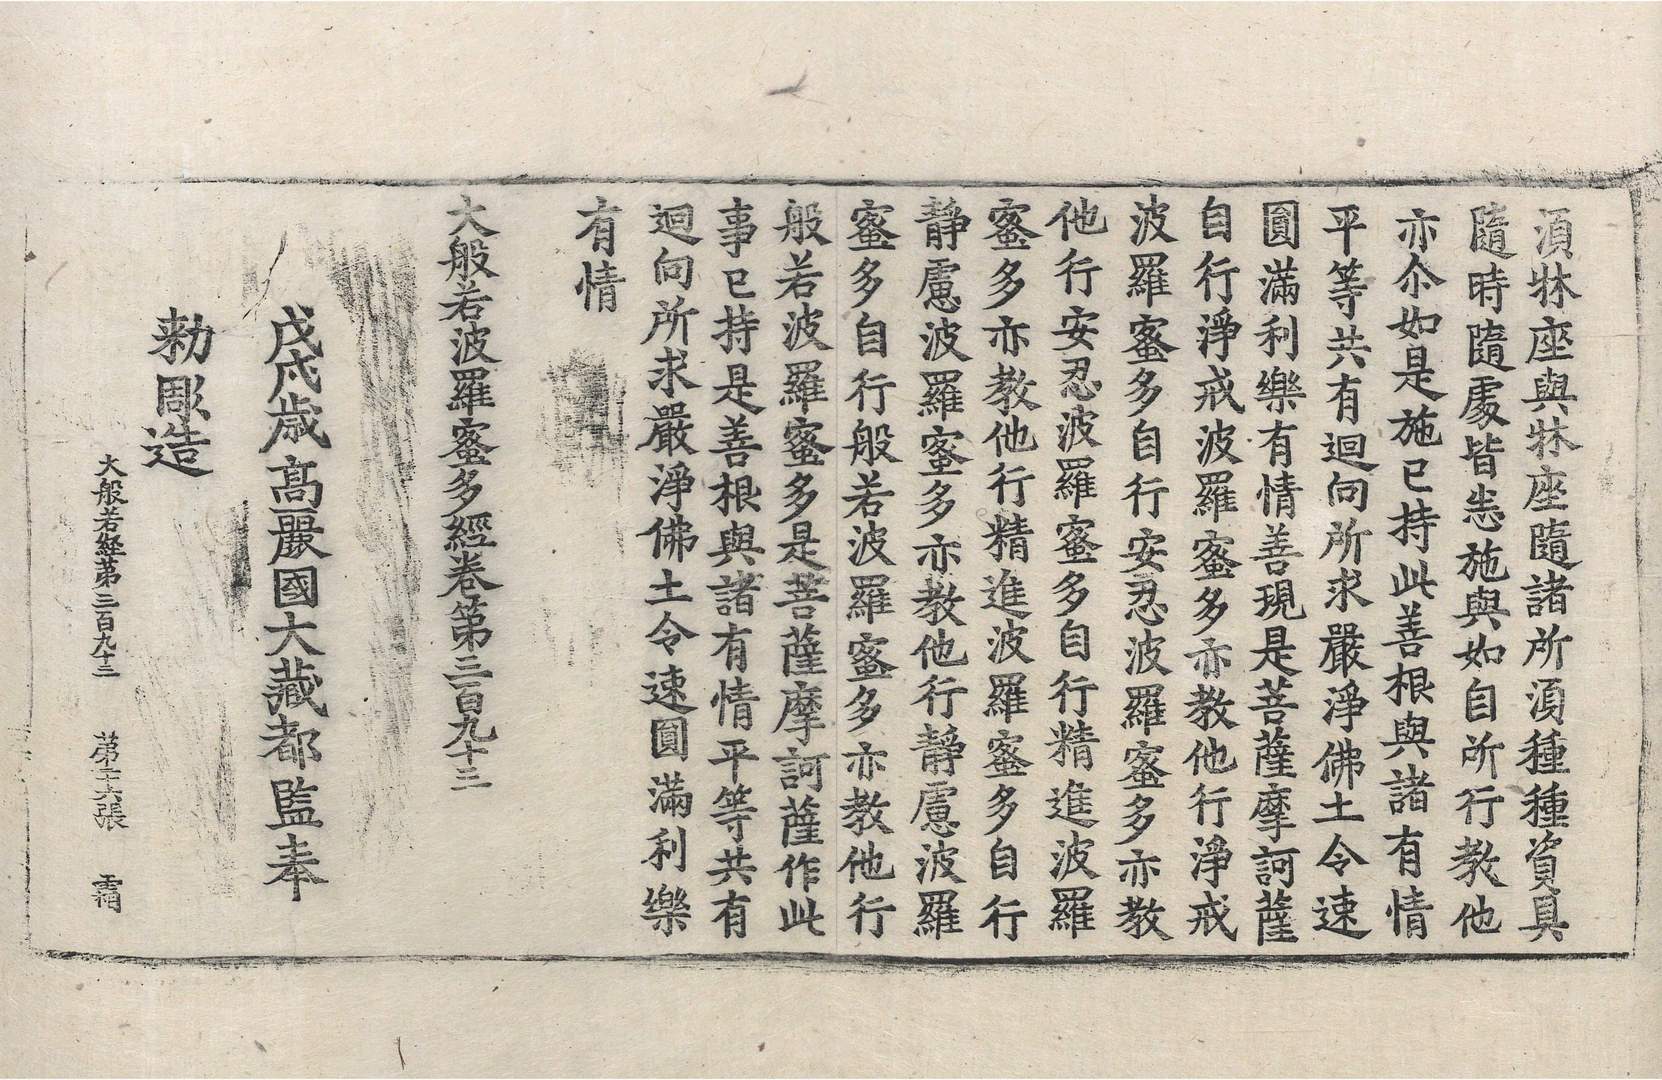 須牀座與牀座隨諸所須種種資具
隨時隨處皆悉施與如自所行教他
亦尒如是施已持此善根與諸有情
平等共有迴向所求嚴淨佛土令速
圓滿利樂有情善現是菩薩摩訶薩
自行淨戒波羅蜜多亦教他行淨戒
波羅蜜多自行安忍波羅蜜多亦教
他行安忍波羅蜜多自行精進波羅
蜜多亦教他行精進波羅蜜多自行
靜慮波羅蜜多亦教他行靜慮波羅
蜜多自行般若波羅蜜多亦教他行
般若波羅蜜多是菩薩摩訶薩作此
事已持是善根與諸有情平等共有
迴向所求嚴淨佛土令速圓滿利樂
有情
大般若波羅蜜多經卷第三百九十三
戊戌歲高麗國大藏都監奉
勑彫造
大般若経苐三百九十三 苐二十六張 霜